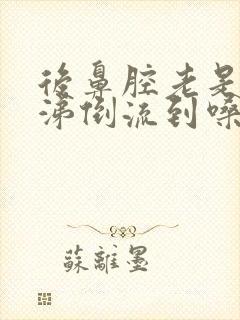 後鼻腔老是
涕倒流到嗓
蘇離墨